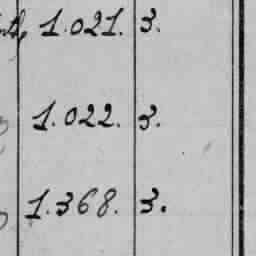 1.021. 3.
1.022. 3.
1.368. 3.